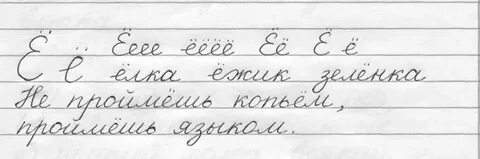 Ё Ёеее ёёёё Ёё Ё ё
Ё ё ёлка ёжик зелёнка
Не проймёшь копьём,
проймёшь языком.